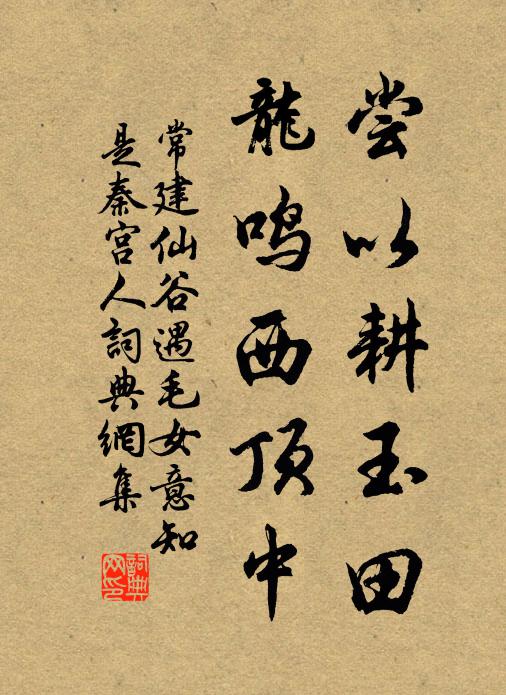 尝以耕玉田
龍鸣西顶中
常建仙谷遇毛女意知
是秦宫人詞典網集
詞典网印